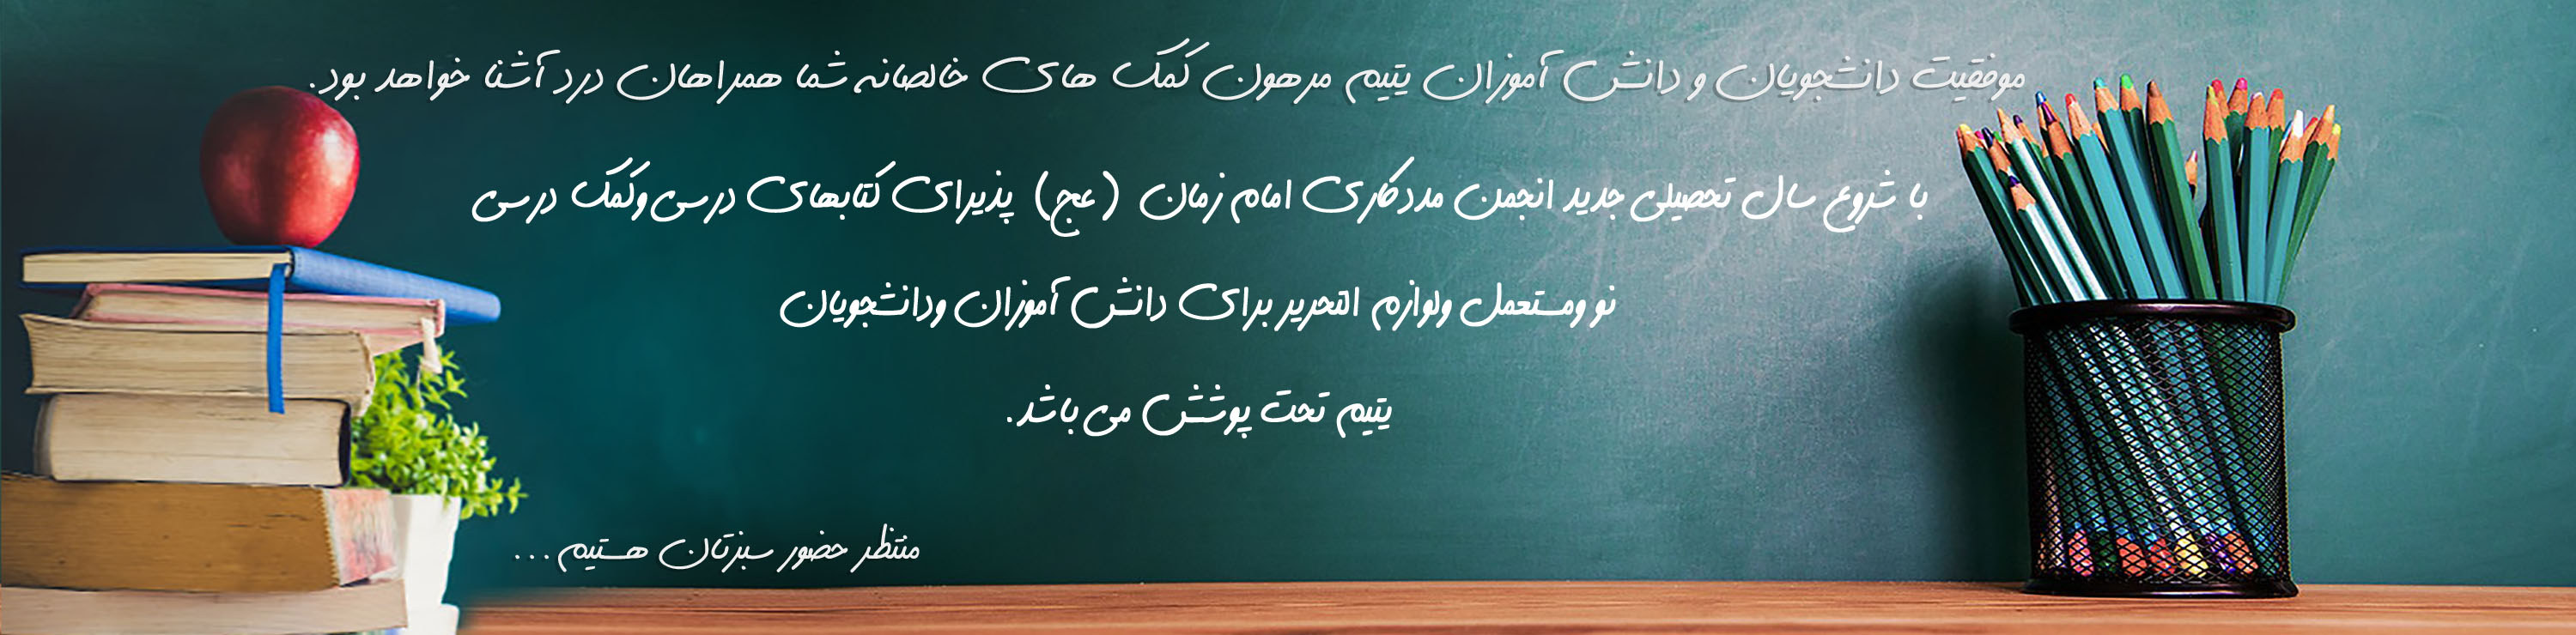 موفقیت دانشجویان و دانش آموزان یتیم مرهون کمک های خالصانه شما همراهان درد آشنا خواهد بود.
با شروع سال تحصیلی جدید انجمن مددکاری امام زمان (عج) پذیرای کتابهای درسی وکمک درسی
نو ومستعمل ولوازم التحریر برای دانش آموزان ودانشجویان
یتیم تحت پوشش می باشد.
منتظر حضور سبزتان هستیم ...